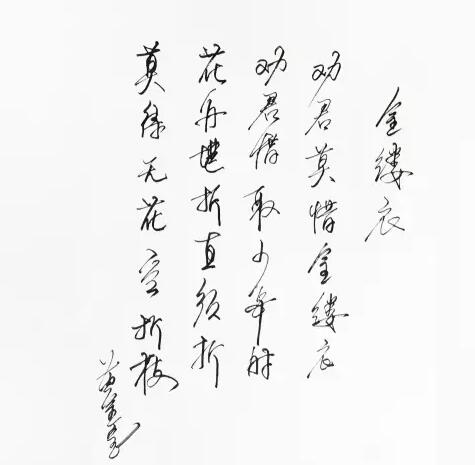 金缕衣
劝君莫惜金缕衣
劝君惜取少年时
花开堪折直须折
莫待无花空折枝